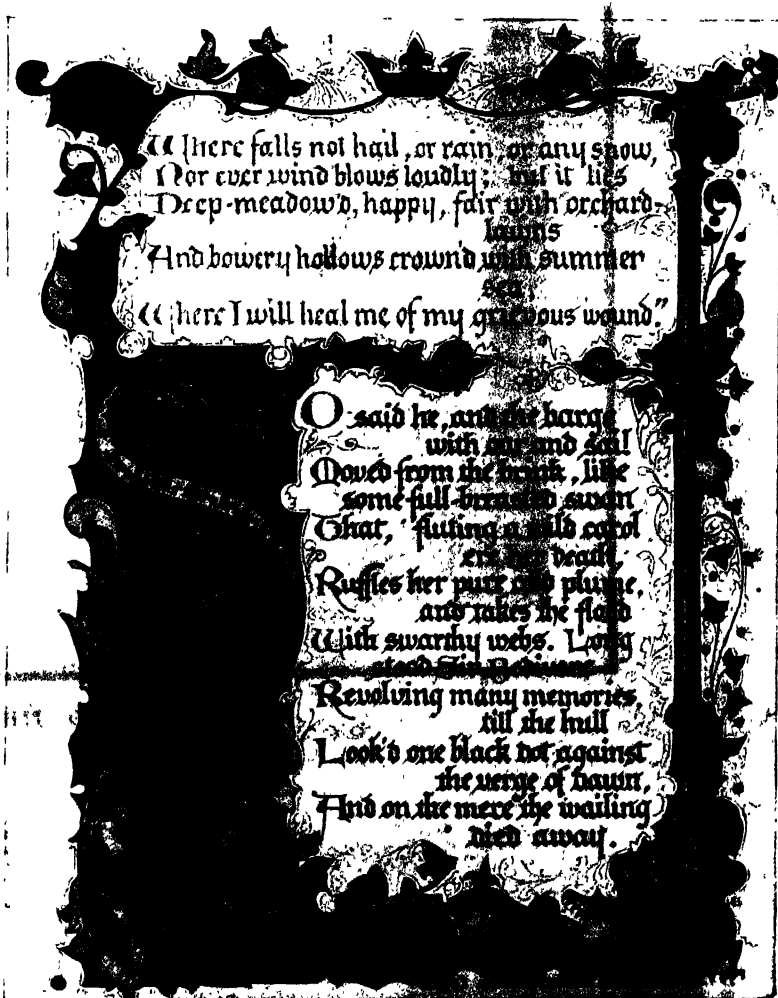 Where falls not hail, or rain or any snow,
Nor ever wind blows loudly; but it lies
Deep-meadow'd, happy, fair with orchard-
lawns
And bowery hollows crown'd with summer
sea
Where I will heal me of my grievous wound."
So said he, and the barge
with oar and sail
Moved from the brink, like
some full-breasted swan
That, fluting a wild carol
ere her death,
Ruffles her pure cold plume,
and takes the flood
With swarthy webs. Long
stood Sir Bedivere
Revolving many memories,
till the hull
Look'd one black dot against
the verge of dawn,
And on the mere the wailing
died away.